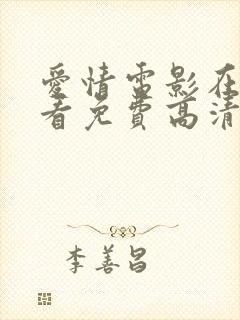 愛情雷影在
看免費高清
李善昌